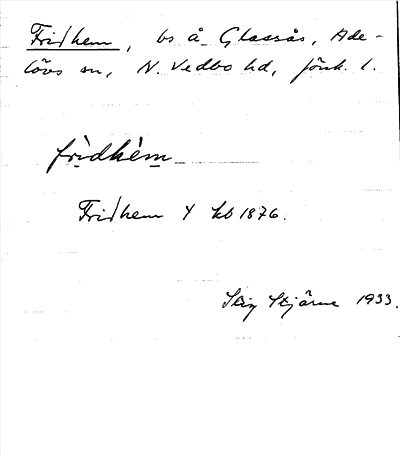 Fridhem, bs å Glassås, Ade-
lövs sn, N. Vedbo hd, Jönk. l.
frìdhèm
Fridhem Y kb 1876.
Stig Stjärne 1933.